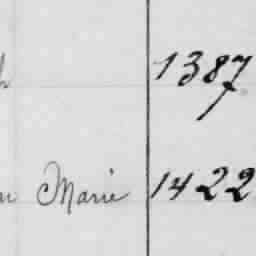 1387
Marie 1422